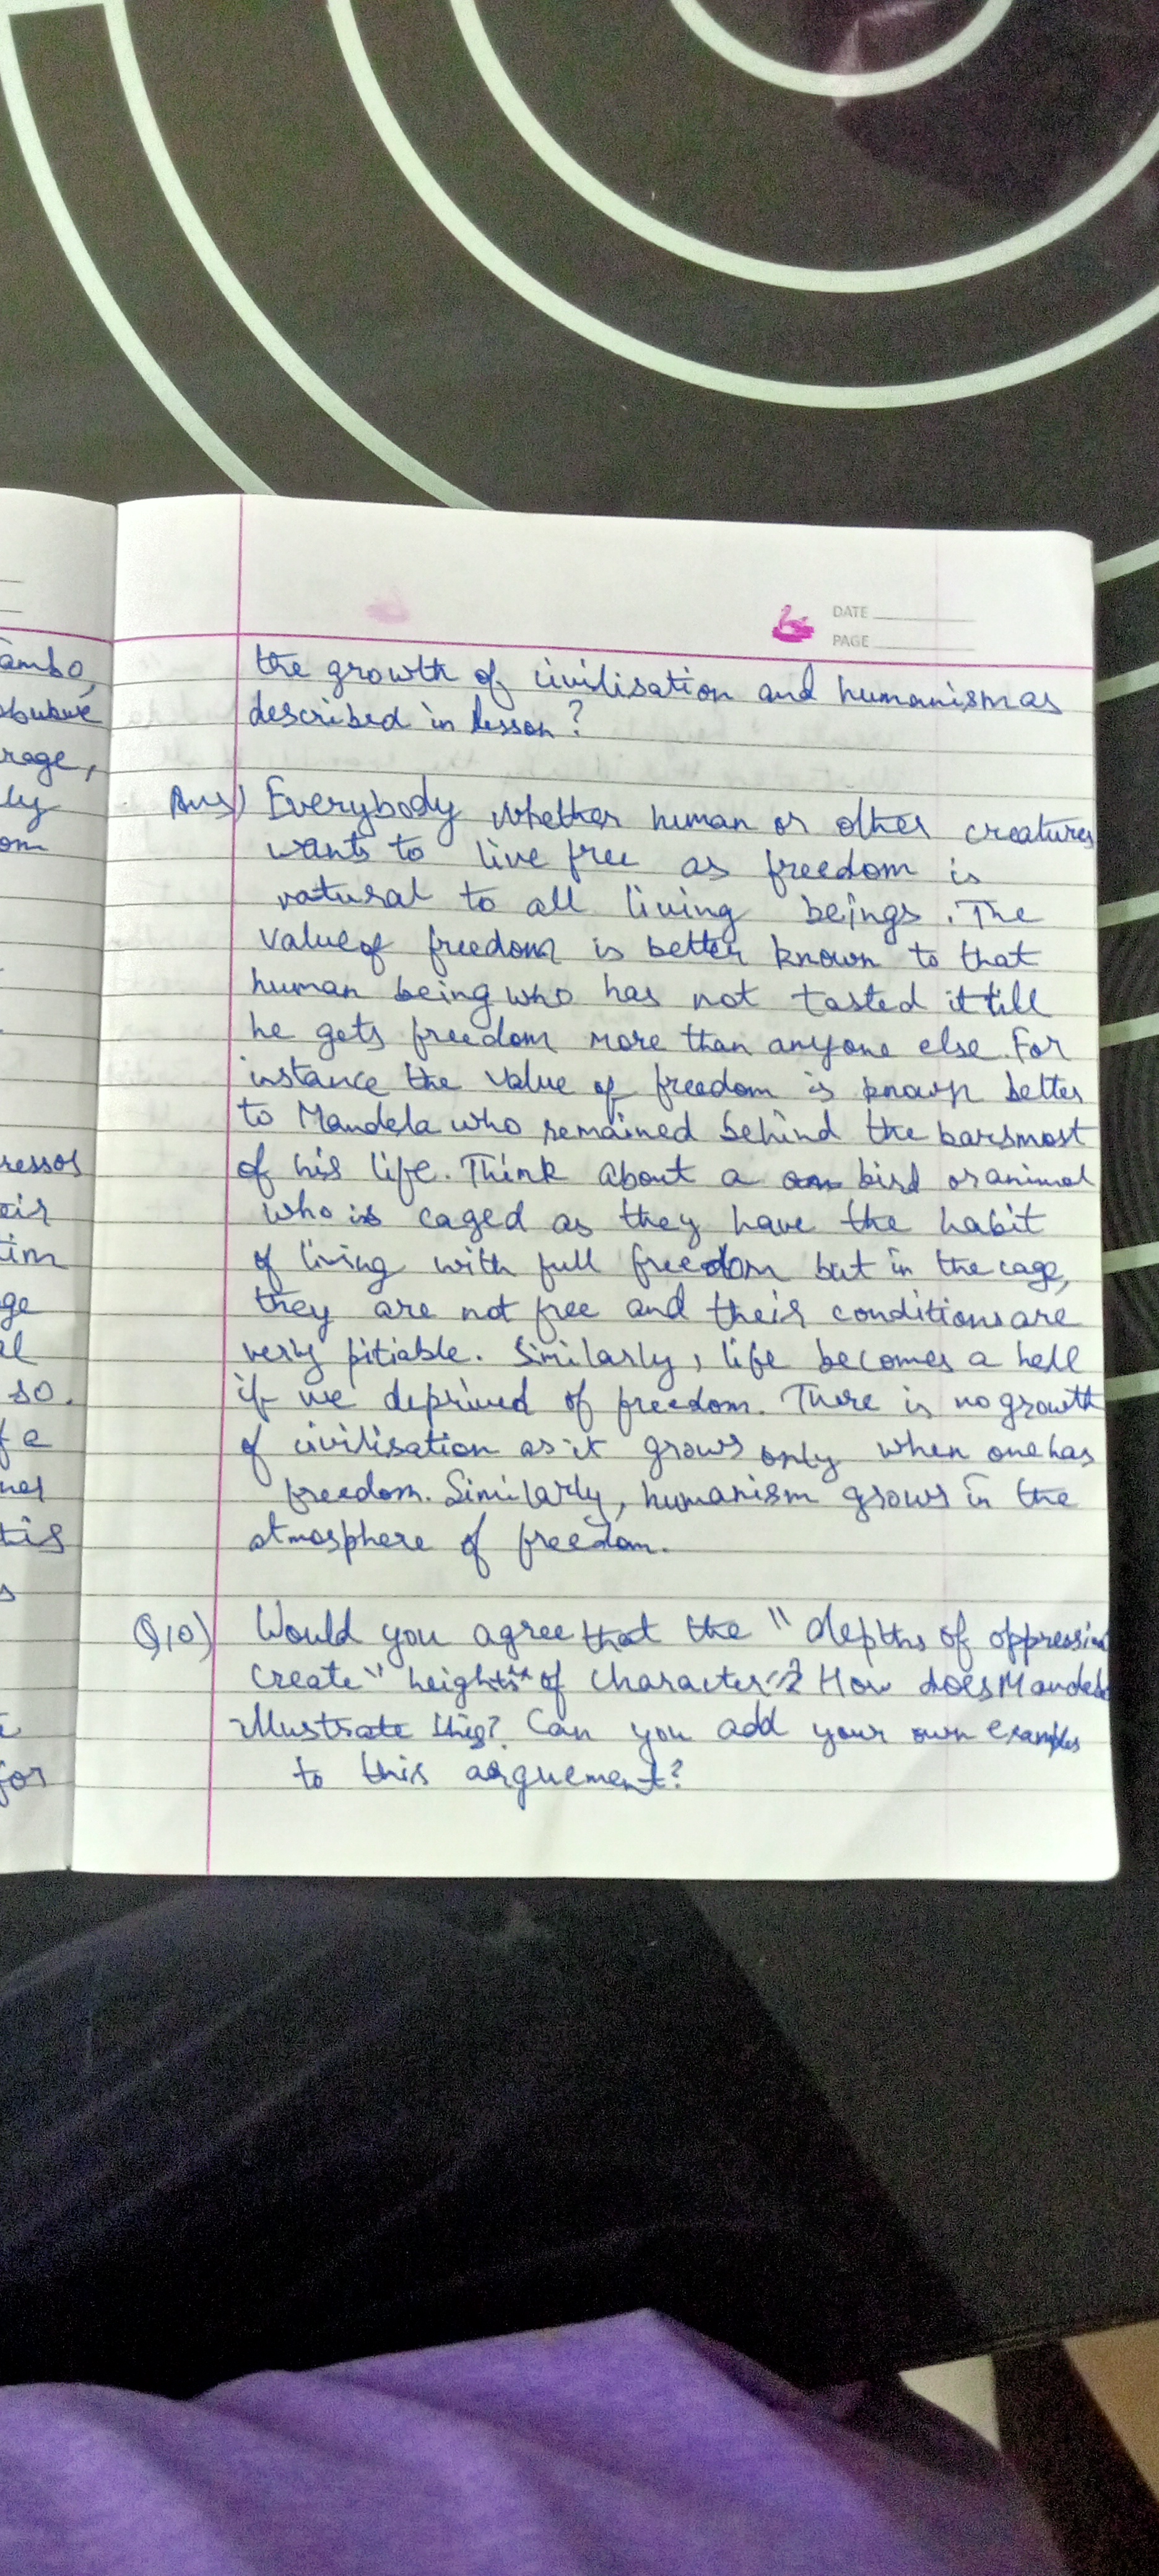 DATE
PAGE
the growth of civilisation and humanism as
described in lesson?
Ans) Everybody whether human or other creatures
wants to live free as freedom is
natural to all living beings. The
value of freedom is better known to that
human being who has not tasted it till
he gets freedom more than anyone else. For
instance the value of freedom is known better
to Mandela who remained behind the bars most
of his life. Think about a bird or animal
who is caged as they have the habit
of living with full freedom but in the cage,
they are not free and their conditions are
very pitiable. Similarly, life becomes a hell
if we deprived of freedom. There is no growth
of civilisation as it grows only when one has
freedom. Similarly, humanism grows in the
atmosphere of freedom.
Q10) Would you agree that the "depths of oppression
create" heights" of character"? How does Mandela
illustrate this? Can you add your own examples
to this arguement?
ambo,
rage,
ly
om
ressor
eir
im
ge
el
so.
f a
ner
tis
s
for